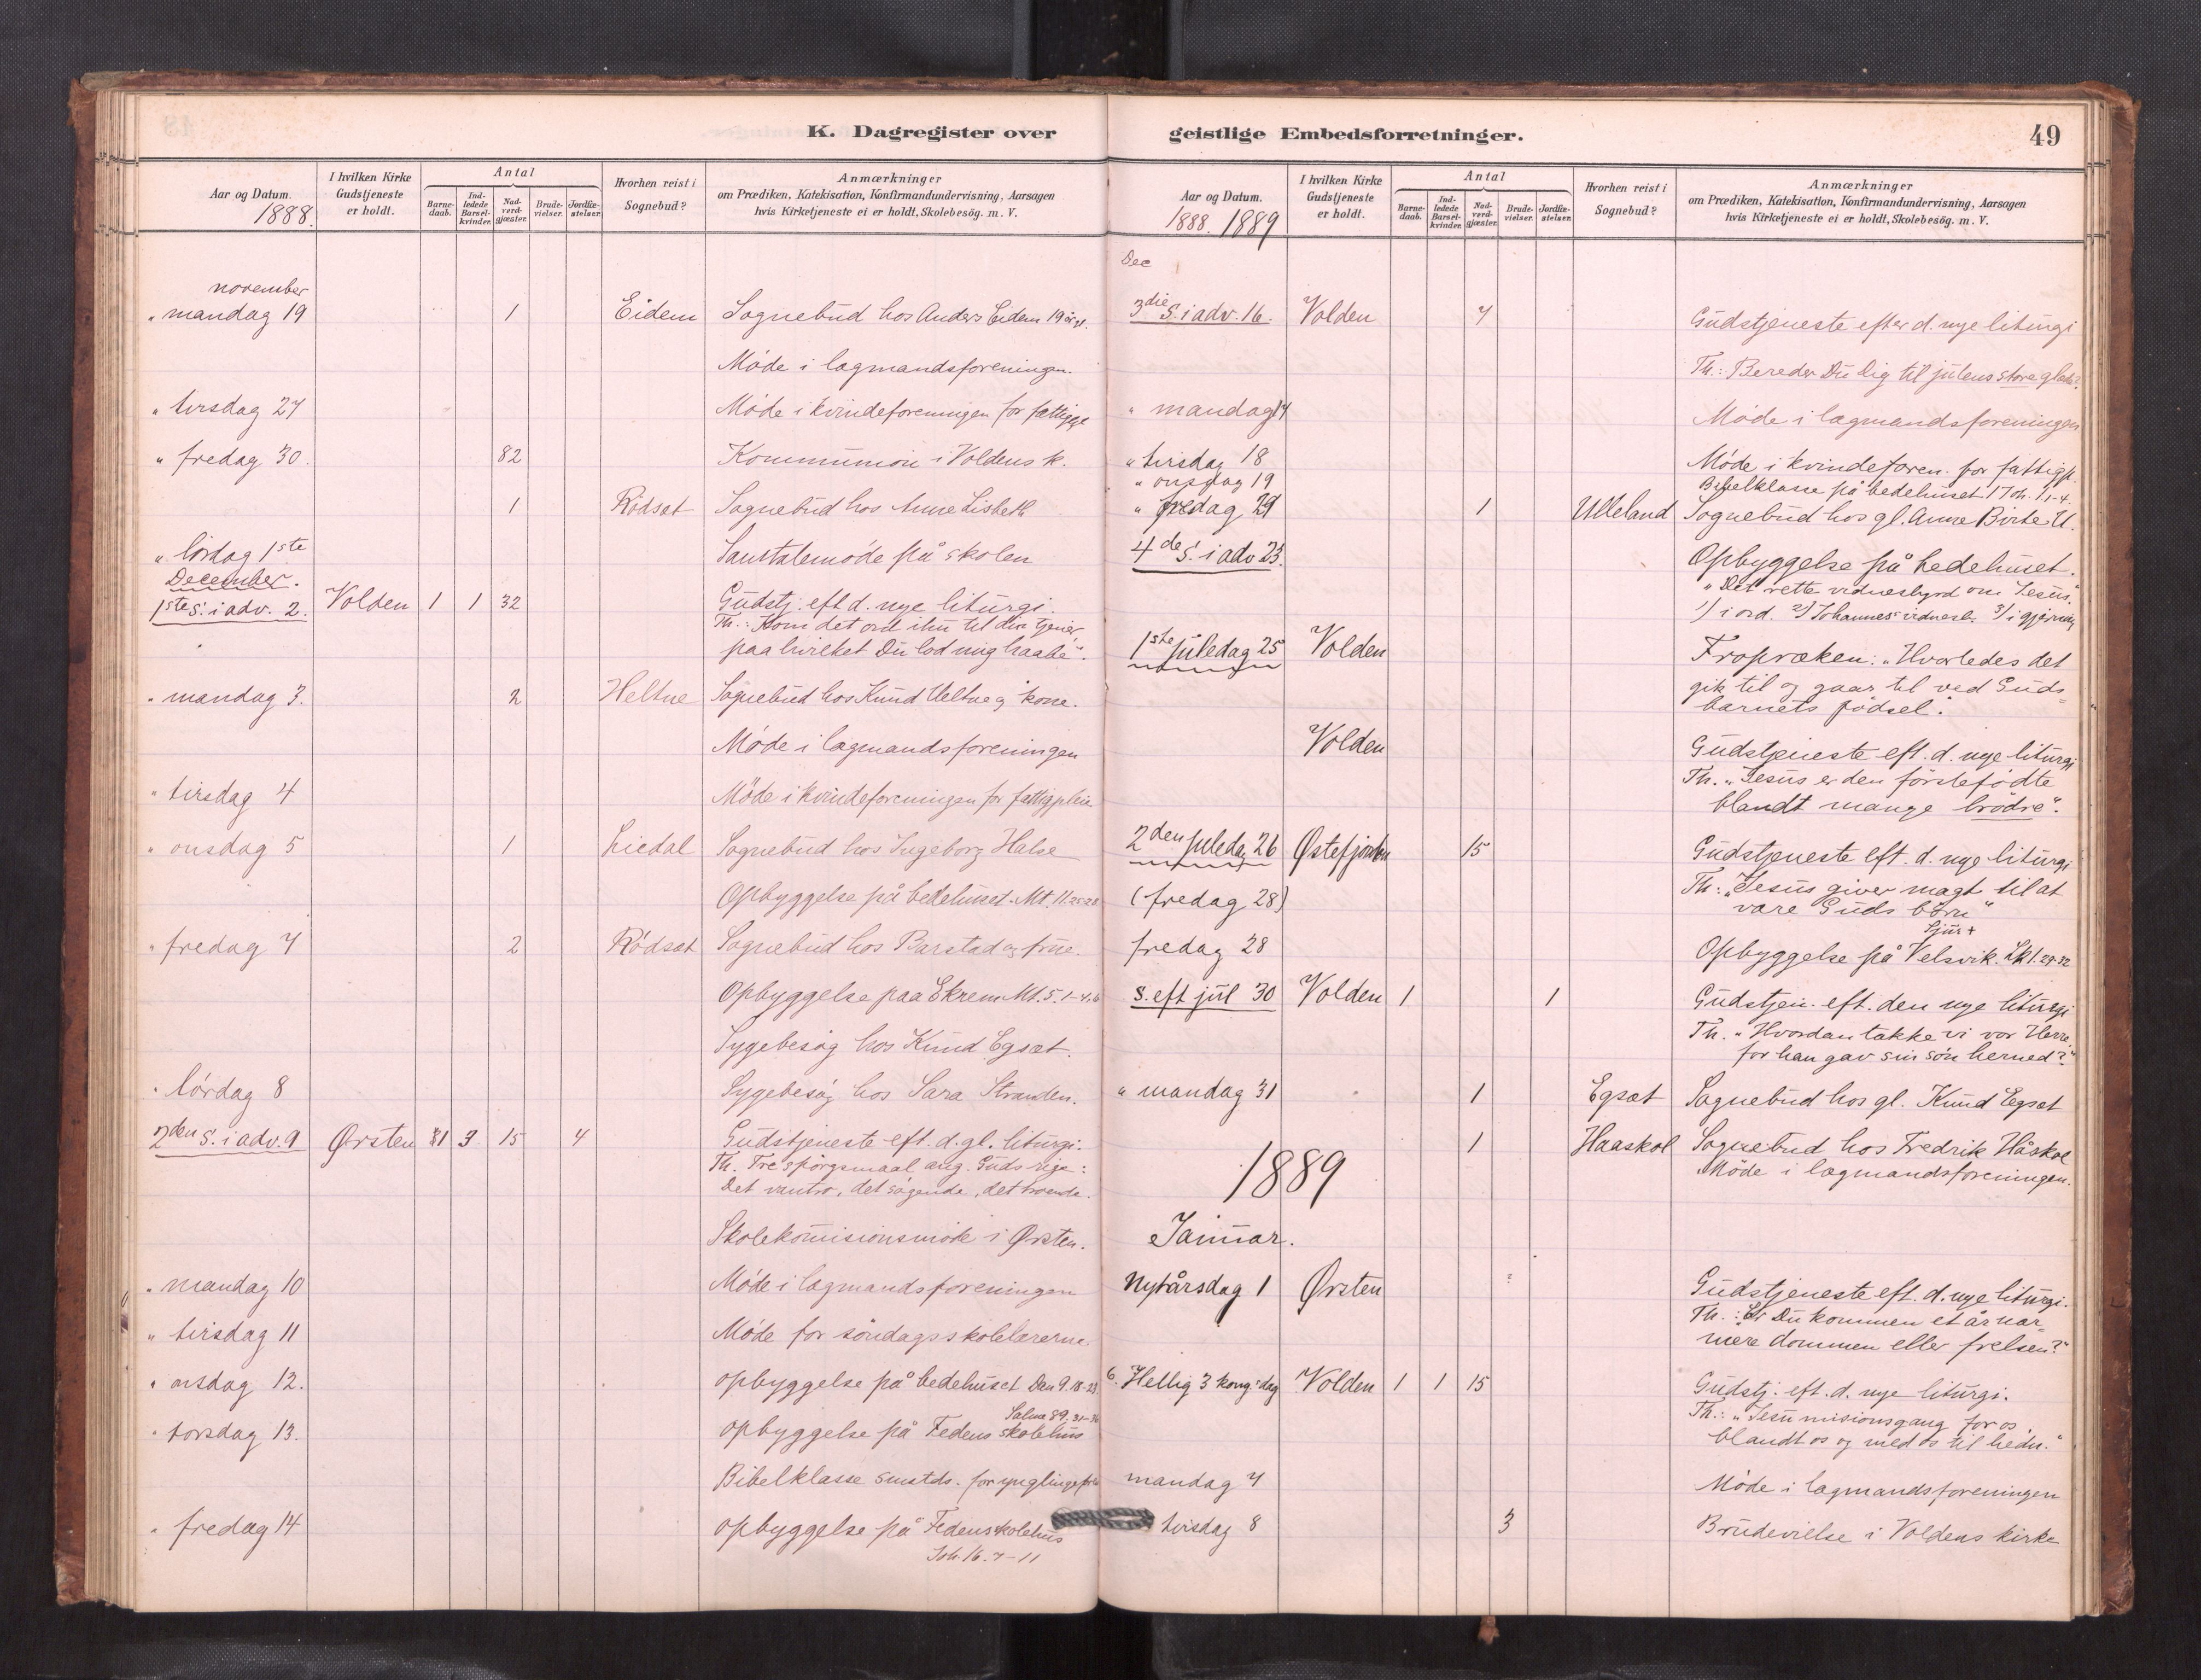 K. Dagregister over
Aar og Datum.
1888.
I hvilken Kirke
Gudstjeneste
er holdt.
Antal
Barne-
daab.
Ind-
ledede
Barsel-
kvinder.
Nad-
verd-
gjæster.
Brude-
vielser.
Jordfæ-
stelser.
Hvorhen reist i
Sognebud?
Anmærkninger
om Prædiken, Katekisation, Konfirmandundervisning, Aarsagen
hvis Kirketjeneste ei er holdt, Skolebesög. m. V.
november
" mandag 19 1 Eidem Sognebud hos Anders Eidem 19 år gl.
Möde i lægmandsforeningen.
" tirsdag 27 Möde i kvindeforeningen for
" fredag 30. 82 Kommunion i Voldens k.
1 Rödsæt Sognebud hos Anne Lisbeth
" lördag 1ste möde på skolen
December.
1ste S. i adv. 2. Volden 1 1 32 Gudstj. eft d. nye liturgi.
Th.: Kom det ord ihu til din tjener,
paa hvilket Du lod mig haabe".
" mandag 3. 2 Heltne Sognebud hos Knud Heltne og kone.
Möde i lægmandsforeningen
" tirsdag 4 Möde i kvindeforeningen for fattigpleie
" onsdag 5 1 Liedal Sognebud hos Ingeborg Halse
Opbyggelse på bedehuset. Mt. 11.25-28
" fredag 7 2 Rödsæt Sognebud hos Barstad og frue.
Opbyggelse paa Ekrem Mt. 5. 1-4.6
Sygebesög hos Knud Egsæt.
" lördag 8 Sygebesög hos Sara Stranden.
2den S. i adv. 9 Ørsten 1 3 15 4 Gudstjeneste eft. d. gl. liturgi.
Th. Tre spörgsmaal ang. Guds rige:
Det vantro, det sögende, det troende.
Skolekomisionsmöde i Ørsten.
" mandag 10 Möde i lægmandsforeningen
" tirsdag 11 Möde for söndagsskolelærerne.
" onsdag 12. opbyggelse på bedehuset Dan 9. 18-23
Salme 89. 31-36
" torsdag 13. opbyggelse på Fedens skolehus
Bibelklasse smstds. for
" fredag 14 opbyggelse på Fedenskolehus
Joh. 16. 7-11
geistlige Embedsforretninger.
49
Aar og Datum.
1888. 1889
I hvilken Kirke
Gudstjeneste
er holdt.
Antal
Barne-
daab.
Ind-
ledede
Barsel-
kvinder.
Nad-
verd-
gjæster.
Brude-
vielser.
Jordfæ-
stelser.
Hvorhen reist i
Sognebud?
Anmærkninger
om Prædiken, Katekisation, Konfirmandundervisning, Aarsagen
hvis Kirketjeneste ei er holdt, Skolebesög. m. V.
Dec
3die S. i adv. 16. Volden 7 Gudstjeneste efter d. nye liturgi
Th.: Bereder Du Dig til julens store glæde?
" mandag 17 Möde i lægmandsforeningen
" tirsdag 18 Möde i kvindeforen. for fattigpl.
" onsdag 19 Bibelklasse på bedehuset 1 Joh. 1 1-4.
" fredag 21 1 Ulleland Sognebud hos gl. Anne Birte U.
4de S. i adv 23. Opbyggelse på bedehuset.
"Det rette vidnesbyrd om Jesus".
1) i ord. 2) Johannes vidnesb. 3) i gjerning
1ste juledag 25 Volden Fropræken: "Hvorledes det
gik til og gaar til ved Guds-
barnets födsel".
Volden Gudstjeneste eft. d. nye liturgi
Th. "Jesus er den förstefödte
blandt mange brödre".
2den juledag 26 Østefjorden 15 Gudstjeneste eft. d. nye liturgi
(fredag 28) Th: "Jesus giver magt til at
være Guds börn"
fredag 28 Opbyggelse på Velsvik. Lk 1.
S. eft jul 30 Volden 1 1 Gudstjen. eft. den nye liturgi
Th. "Hvordan takke vi vor Herre,
for han gav sin sön herned?"
" mandag 31 1 Egsæt Sognebud hos gl. Knud Egsæt
1 Haaskol Sognebud hos Fredrik Håskol
Möde i lægmandsforeningen.
1889
Januar.
Nytårsdag 1 Ørsten Gudstjeneste eft. d. nye liturgi.
Th.: Er Du kommen et år nær-
mere dommen eller frelsen?"
6. Hellig 3 kong. dag Volden 1 1 15 Gudstj. eft. d. nye liturgi.
Th.: "Jesu misionsgang for os,
blandt os og med os til hedn."
mandag 7 Möde i lægmandsforeningen
tirsdag 8 3 Brudevielse i Voldens kirke